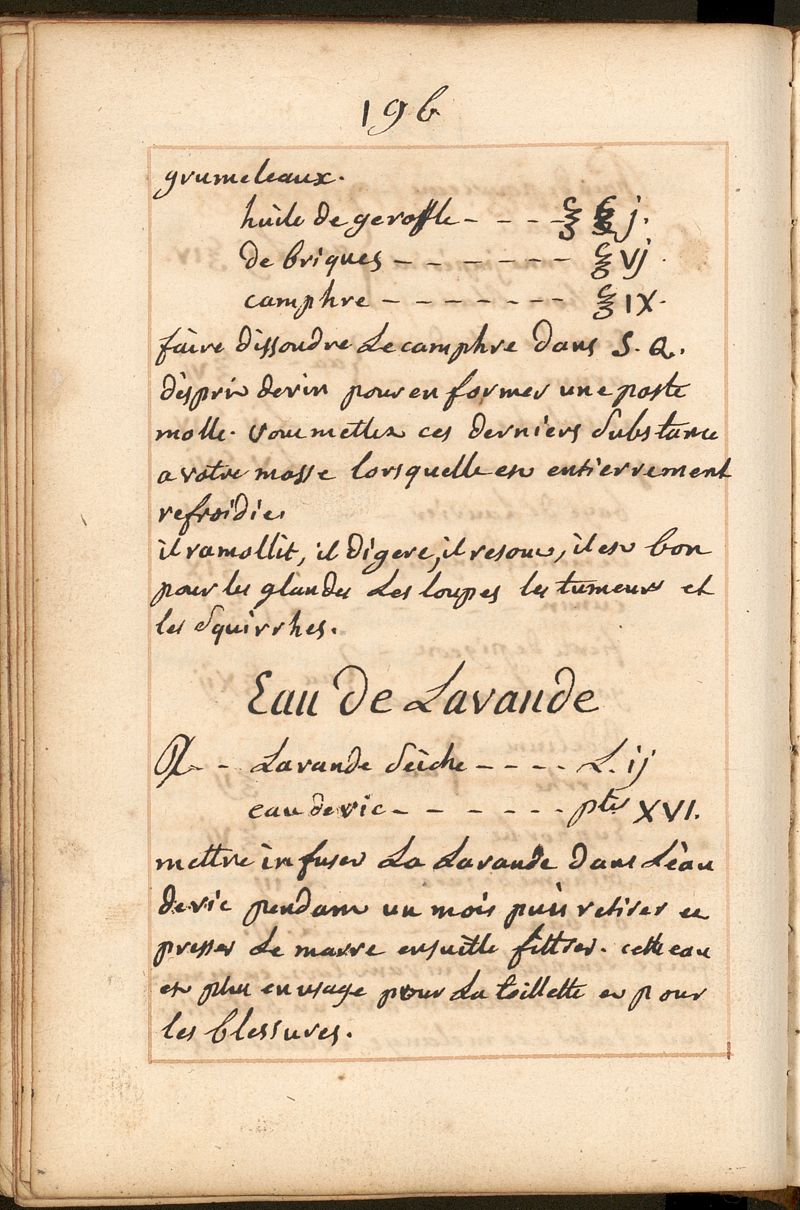 196
grumeleaux.
huile de geroffle - - - - ℥ ℥ j.
de briques - - - - - - ℥ vj.
camphre - - - - - - - ℥ IX.
faire dissoudre Le camphre dans S. Q.
dèsprit devin pour en former une paste
molle. vous mettez ces derniers substance
a votre masse lorsquelle est entierrement
refroidie.
il ramollit, il digere, il resout, il est bon
pour les glandes Les loupes les tumeurs et
les squirrhes.
Eau de Lavande
℞ - - Lavande sèiche - - - - L. ij
eau devie - - - - - - ptes XVI.
mettre infuser La Lavande dans Lèau
devie pendant un mois puis retirer et
presser Le marre ensuitte filtrer. cette eau
est plus en usage pour La toillette et pour
les blessures.